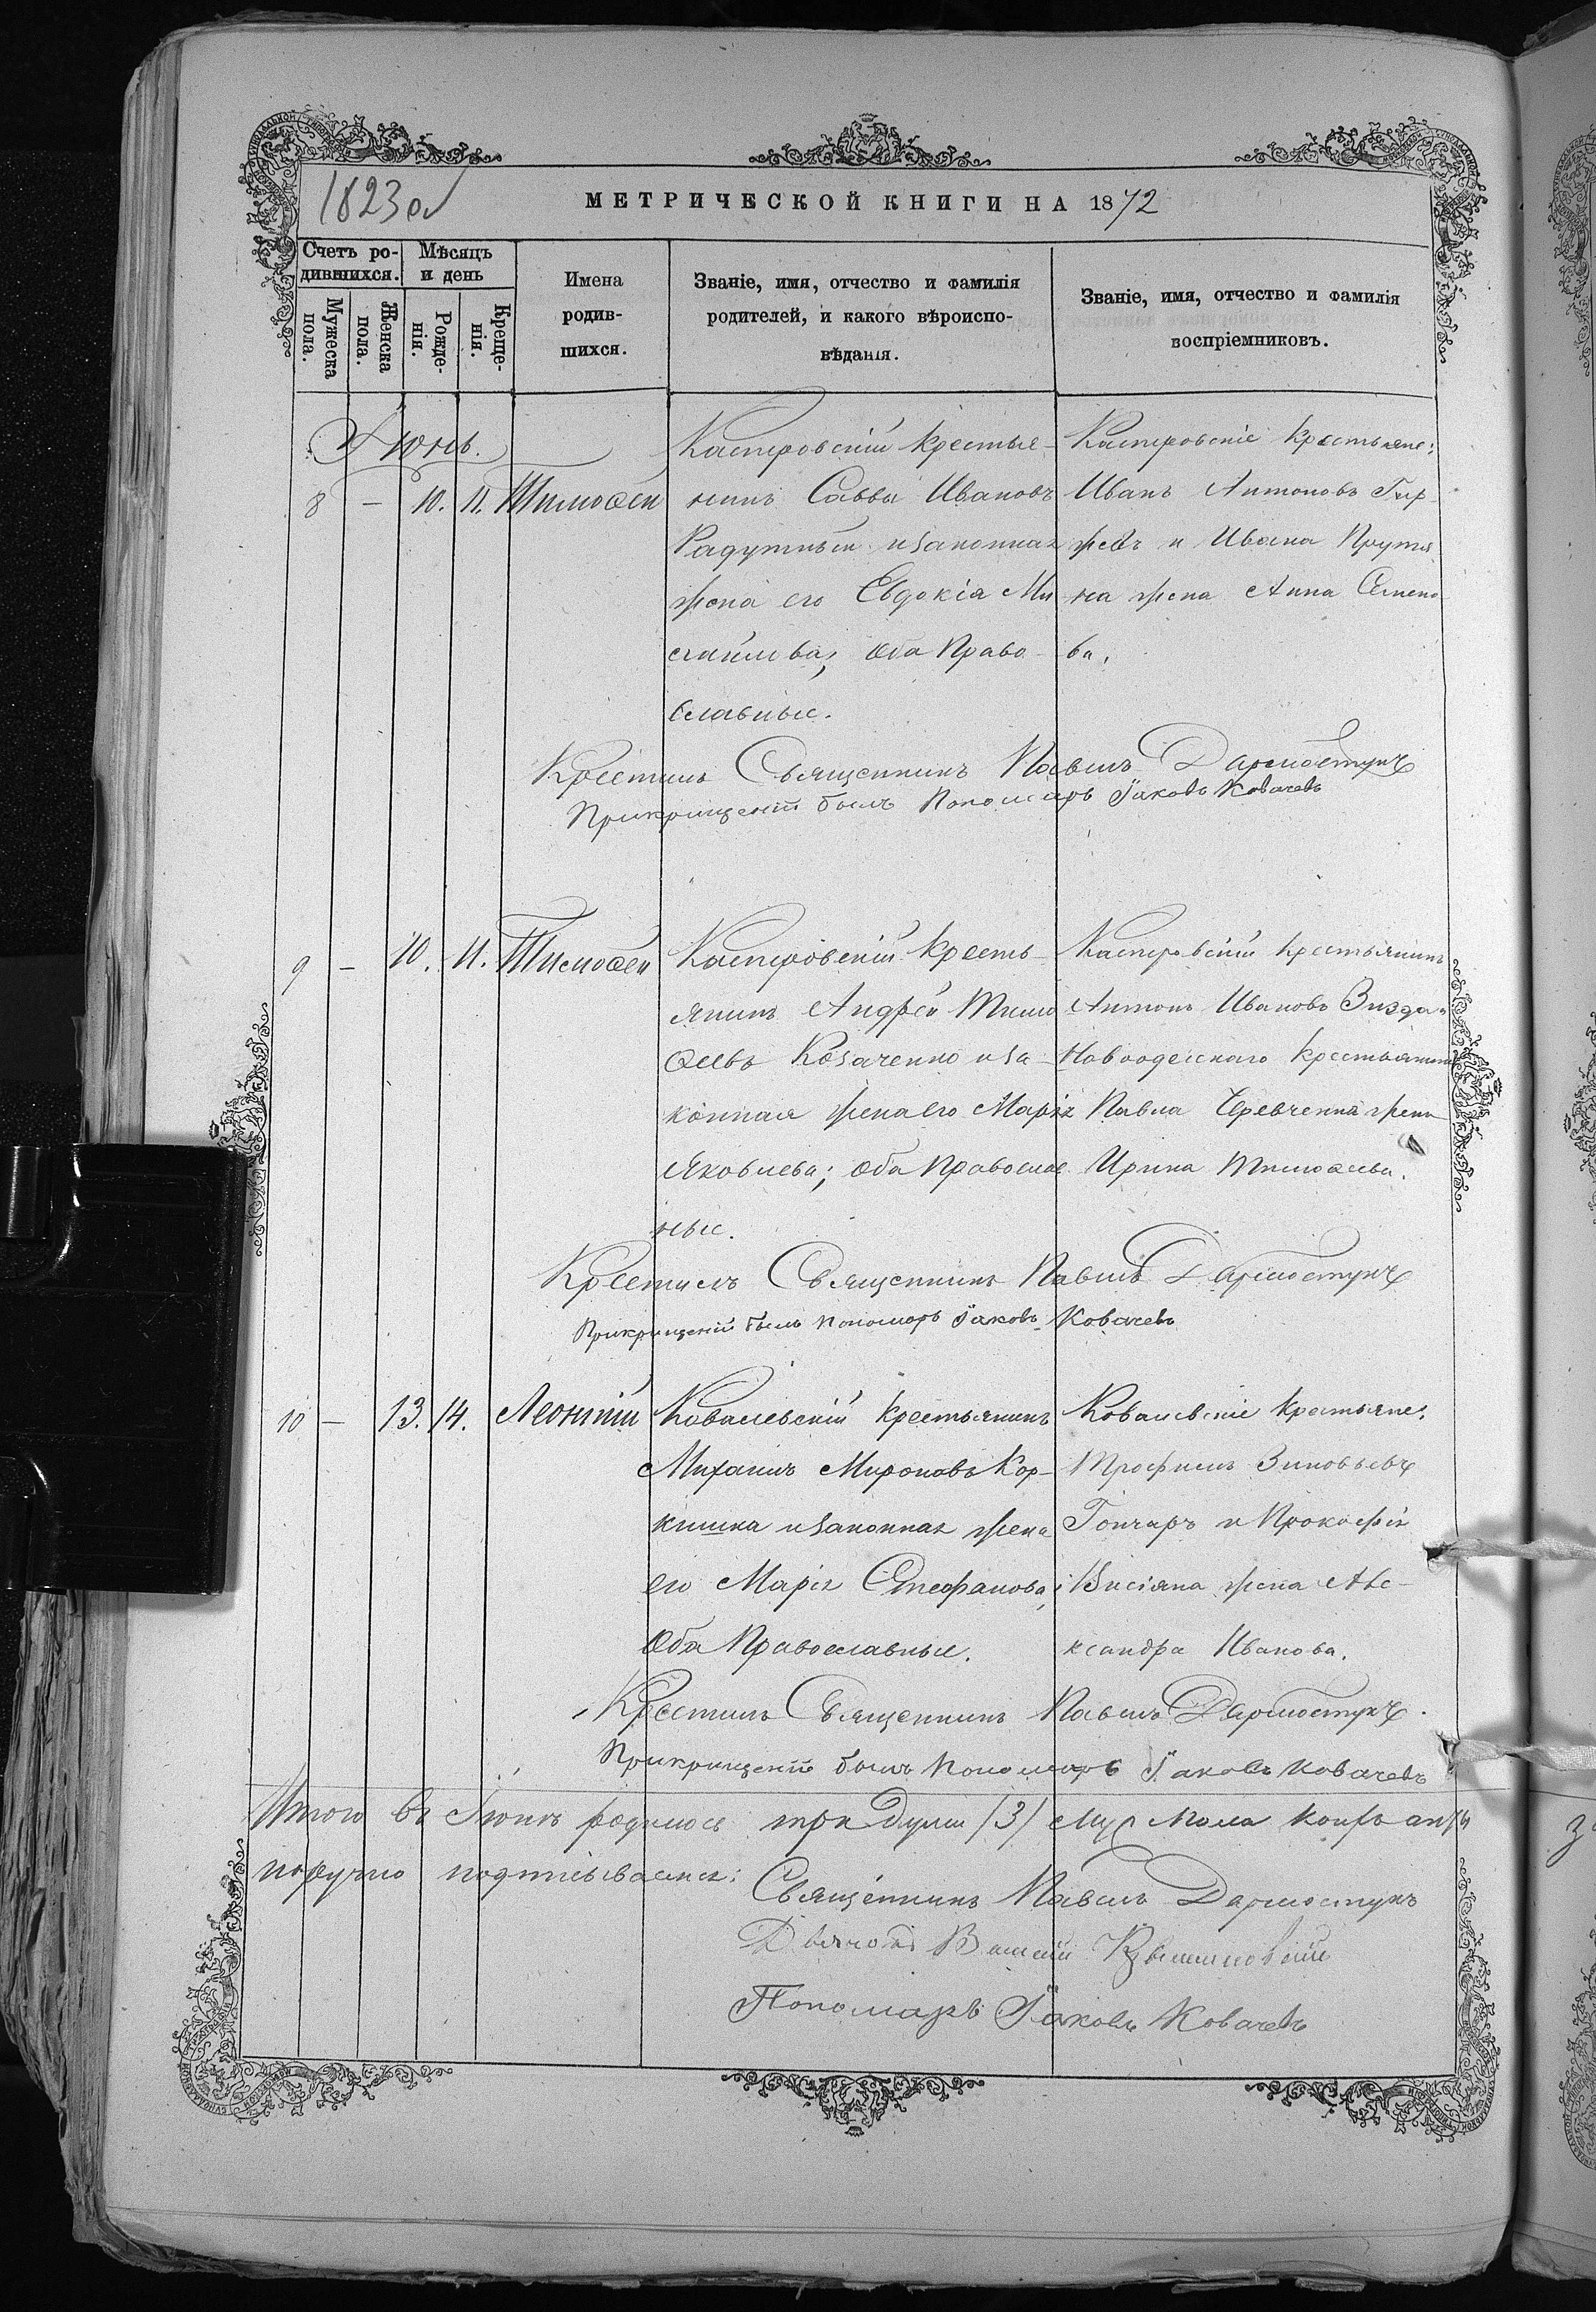 1823 об
МЕТРИЧЕСКОЙ КНИГИ НА 1872
Счетъ ро-
дившихся.
Мѣсяцъ
и день
Мужеска
пола.
Женска
пола.
Рожде-
нія.
Креще-
нія.
Имена
родив-
шихся.
Званіе, имя, отчество и фамилія
родителей, и какого вѣроиспо-
вѣданія.
Званіе, имя, отчество и фамилія
воспріемниковъ.
Июнь.
8 — 10. 11. Тимоѳей
Касперовскій крестья-
нинъ Савва Ивановъ
Радутный и законная
жена его Евдокія Ми
хайлова; Оба Право-
славные.
Касперовскіе крестьяне:
Иванъ Антоновъ Гир-
жевъ и Ивана Прутя
на жена Анна Семено
ва.
Крестилъ Священникъ Павелъ Дармостукъ
Прикрищеніи былъ Пономарь Іаковъ Ковачевъ
9 — 10. 11. Тимоѳей
Касперовскій кресть-
янинъ Андрей Тимо
ѳеевъ Козаченко и за-
конная жена его Марія
Яковлева; Оба Православ
ные.
Касперовскій крестьянинъ
Антонъ Ивановъ
Новоодесскаго крестьянина
Павла Черевченка жена
Ирина Тимоѳеева.
Крестилъ Священникъ Павелъ Дармостукъ
Прикрищеніи былъ пономарь Іаковъ Ковачевъ
10 — 13. 14. Леонтій
Ковалевскій крестьянинъ
Михаилъ Мироновъ Кор-
кишка и законная жена
его Марія Стефанова;
Оба Православные.
Ковалевскіе крестьяне:
Трофимъ Зиновьевъ
Гончаръ и Прокофія
жена Але-
ксандра Иванова.
Крестилъ Священникъ Павелъ Дармостукъ.
Прикрищеніи былъ Пономарь Іаковъ Ковачевъ
Итого въ Іюнѣ родилось три души /3/ муж пола
подписываемся:
Священникъ Павелъ Дармостукъ
Дьячокъ
Пономарь Іаковъ Ковачевъ